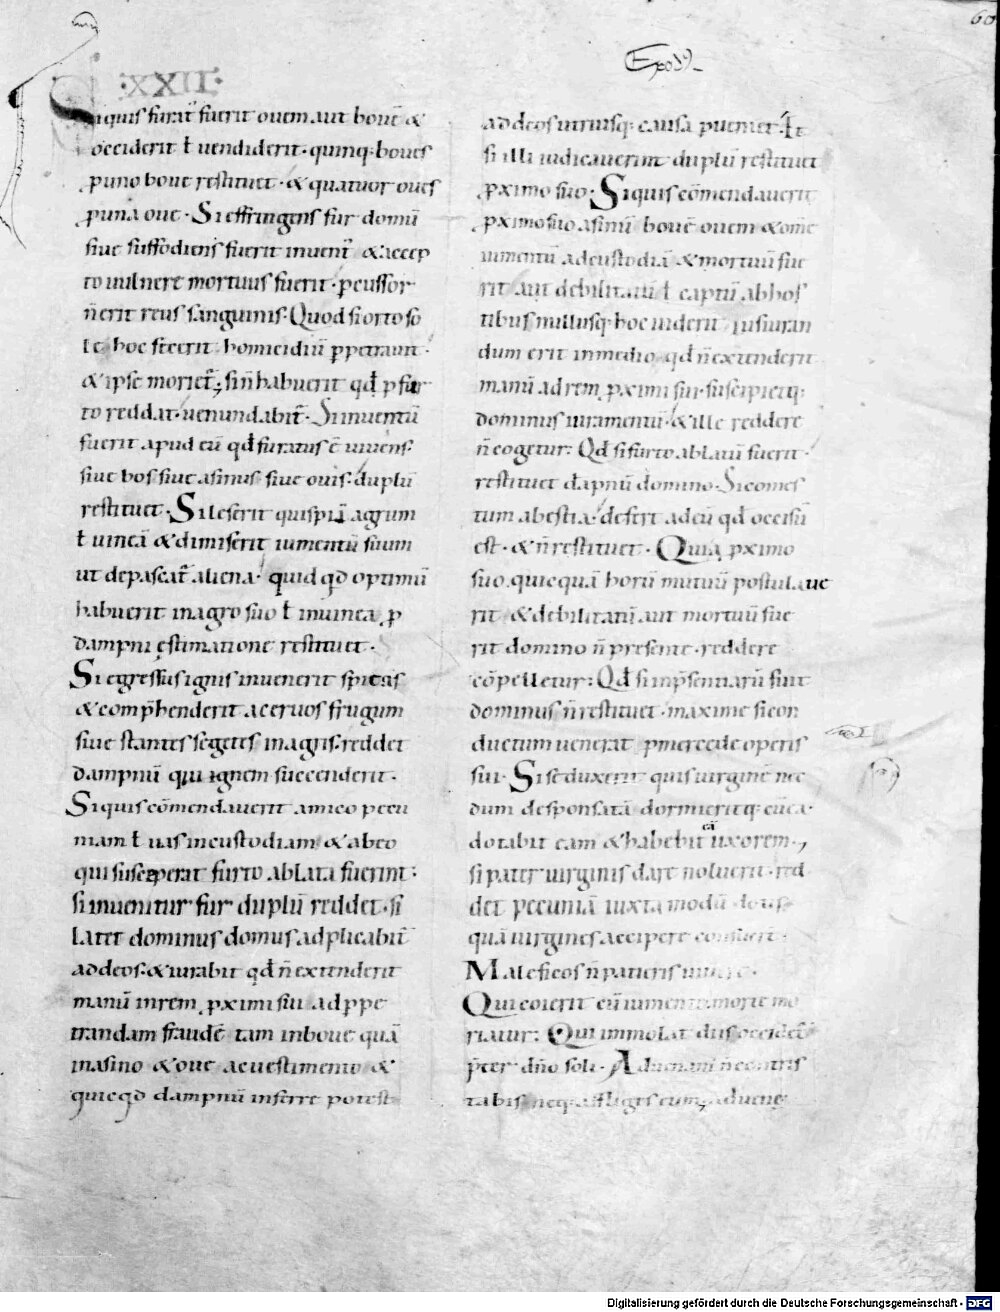 60
Exod9
·XXII·
Siquis furat̄ fuerit ouem aut bouē &
occiderit ł uendiderit· quinq; boues
ꝓ uno boue restituet· & quatuor oues
ꝓ una oue· Si effringens fur domū
siue suffodiens fuerit inuent̄ & accep
to uulnere mortuus fuerit· ꝑcussor
n̄ erit reus sanguinis· Quod si orto so
le hoc fecerit homicidiū ꝑpetrauit·
& ipse moriet̄; si n̄ habuerit qđ ꝓ fur
to reddat· uenundabit̄· Si inuentū
fuerit apud eū qđ furatus ē uiuens·
siue bos siue asinus siue ouis· duplū
restituet· Si leserit quispiā agrum
ł uineā & dimiserit iumentū suum
ut depascat̄ aliena· quidqd optimū
habuerit in agro suo ł in uinea ꝓ
dampni estimatione restituet·
Si egressus ignis inuenerit spicas
& comp̄henderit aceruos frugum
siue stantes segetes in agris· reddet
dampnū qui ignem succenderit·
Siquis cōmendauerit amico pecu
niam ł uas in custodiam & ab eo
qui susceperat furto ablata fuerint:
si inuenitur fur duplū reddet· si
latet dominus domus adplicabit̄
ad deos· & iurabit qđ n̄ extenderit
manū in rem ꝓximi sui ad ꝑpe
trandam fraudē tam in boue quā
in asino & oue ac uestimento &
quicqd dampnū inferre potest
ad deos utriusq; causa ꝑueniet· Et
si illi iudicauerint duplū restituet
ꝓximo suo· Siquis cōmendauerit
ꝓximo suo asinū bouē ouem & om̄e
iumentū ad custodiā & mortuū fue
rit aut debilitatū ł captū ab hos
tibus nullusq; hoc uiderit iusiuran
dum erit in medio qđ n̄ extenderit
manū ad rem ꝓximi sui· suscipietq;
dominus iuramentū· & ille reddere
n̄ cogetur: Qđ si furto ablatū fuerit·
restituet dāpnū domino· Si comes
tum a bestia· deferet ad eū qđ occisū
est· & n̄ restituet· Qui a ꝓximo
suo quicquā horū mutuū postulaue
rit & debilitatū aut mortuū fue
rit domino n̄ presente· reddere
cōpelletur: Qđ si inp̄sentiarū fuit
dominus n̄ restituet· maxime si con
ductum uenerat ꝓ mercede operis
sui· Si seduxerit quis uirginē nec
dum desponsatā dormieritq; cū ea·
dotabit eam & habebit eā uxorem;
si pater uirginis dare noluerit· red
det pecuniā iuxta modū dotis
quā uirgines accipere consueū·
Maleficos n̄ patieris uiuere·
Qui coierit cū iumento morte mo
riatur: Qui immolat diis occidet̄
p̄ter dn̄o soli· Aduenam n̄ contris
tabis neq; affliges eum; aduene